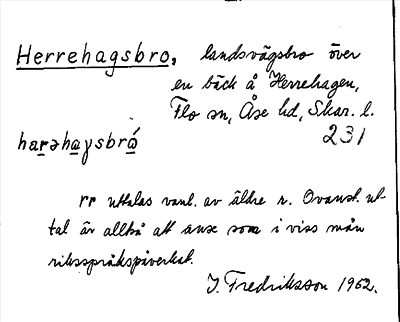 Herrehagsbro, landsvägsbro över
en bäck å Herrehagen,
Flo sn, Åse hd, Skar. l.
231
harəhaγsbró
rr uttalas vanl. av äldre r. Ovanst. ut-
tal är alltså att anse som i viss mån
riksspråkspåverkat.
J. Fredriksson 1962.